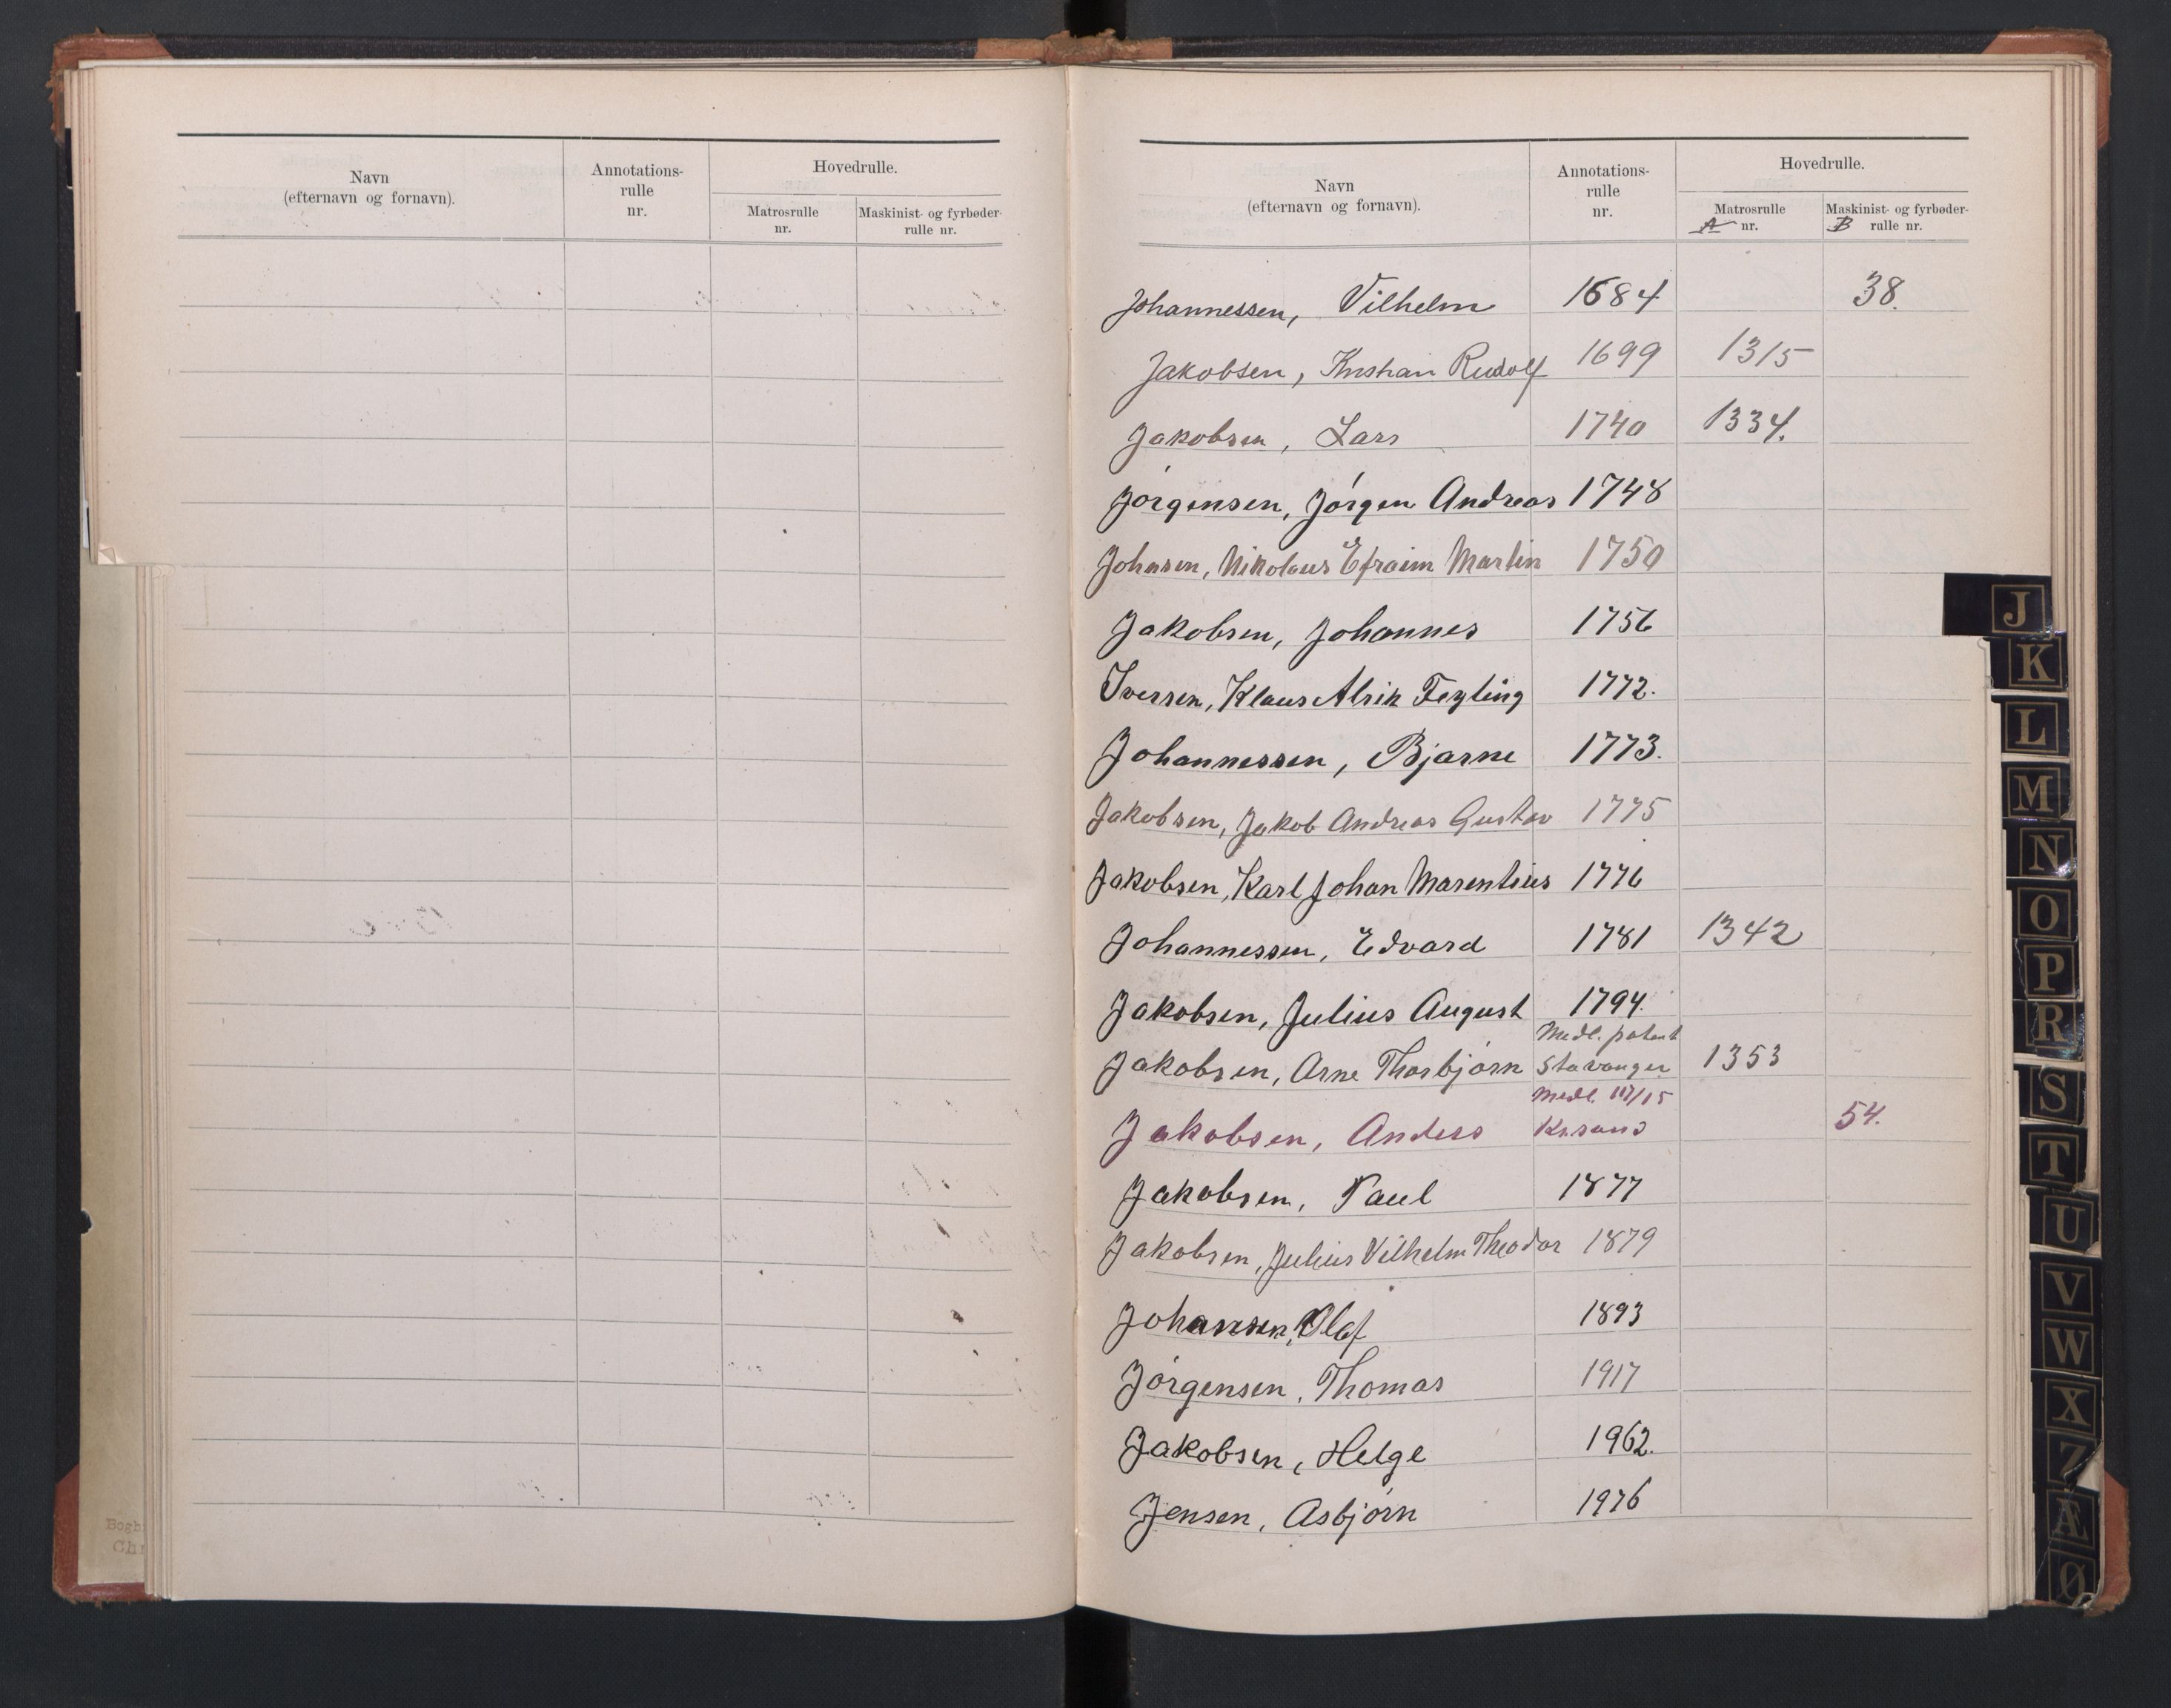 Navn
(efternavn og fornavn).
Annotations-
rulle
nr.
Hovedrulle.
Matrosrulle
nr.
Maskinist- og fyrbøder-
rulle nr.
Navn
(efternavn og fornavn).
Annotations-
rulle
nr.
Hovedrulle.
Matrosrulle
A nr.
Maskinist- og fyrbøder-
B rulle nr.
Johannessen, Vilhelm 1684 38.
Jakobsen, Kristian Rudolf 1699 1315
Jakobsen, Lars 1740 1334.
Jörgensen, Jörgen Andreas 1748
Johnsen, Nikolaus Efraim Martin 1750
Jakobsen, Johannes 1756
Iversen, Klaus Alrik Feyling 1772.
Johannessen, Bjarne 1773.
Jakobsen, Jakob Andreas Gustav 1775
Jakobsen, Karl Johan Marentius 1776
Johannessen, Edvard 1781 1342
Jakobsen, Julius August 1794.
Medl. patent
Jakobsen, Arne Thorbjörn Stavanger 1353
Medl. 117/15
Jakobsen, Anders Kr.sand 54.
Jakobsen, Paul 1877
Jakobsen, Julius Vilhelm Theodor 1879
Johansen, Olaf 1893
Jörgensen, Thomas 1917
Jakobsen, Helge 1962.
Jensen, Asbjörn 1976
J
K
L
M
N
O
P
R
S
T
U
V
W
X
Z
Æ
Ø